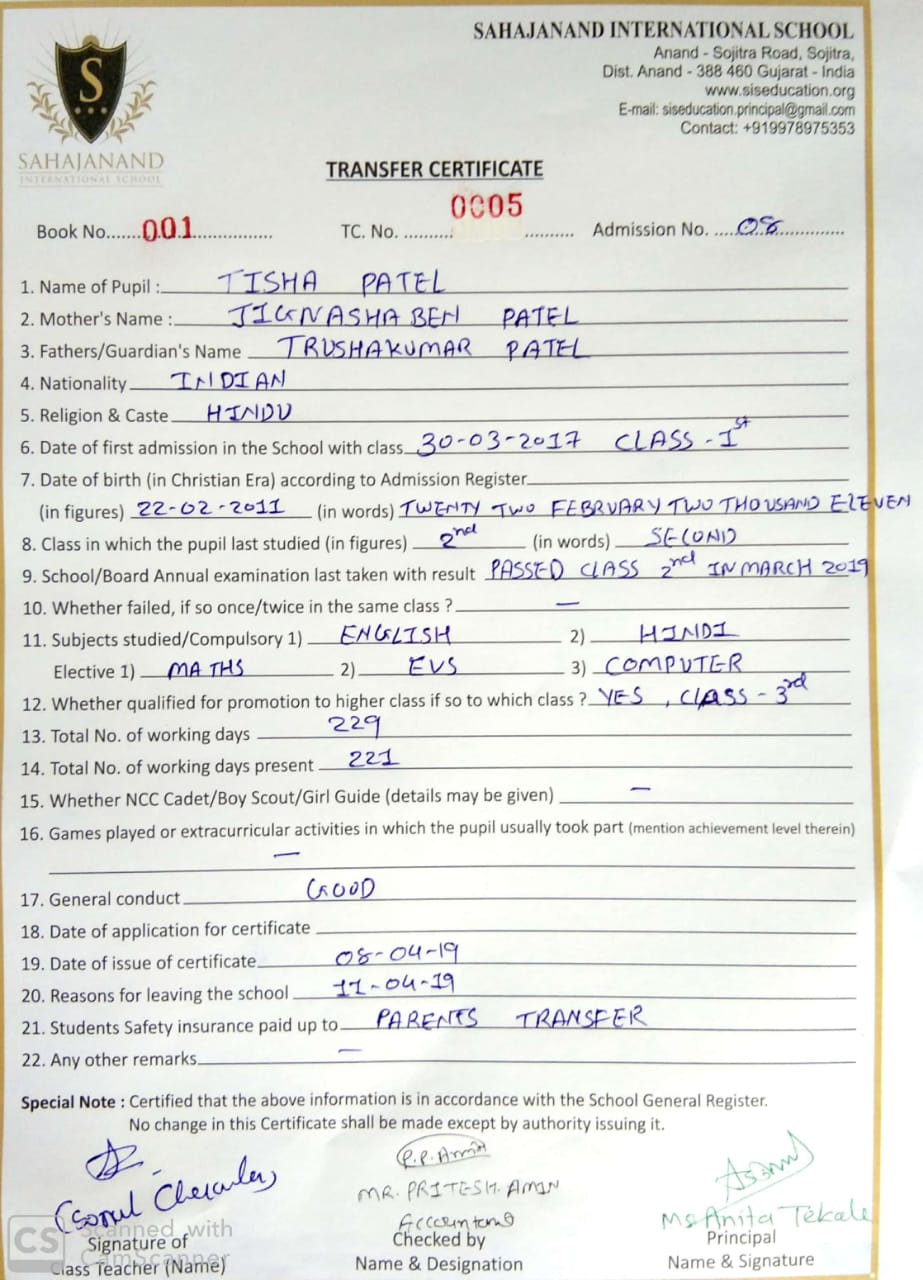 SAHAJANAND INTERNATIONAL SCHOOL
Anand - Sojitra Road, Sojitra,
Dist. Anand - 388 460 Gujarat - India
www.siseducation.org
E-mail: siseducation.principal@gmail.com
Contact: +919978975353
S
SAHAJANAND
INTERNATIONAL SCHOOL
TRANSFER CERTIFICATE
Book No......001................. TC. No. .......... 0005 .......... Admission No. ....08..............
1. Name of Pupil : TISHA PATEL
2. Mother's Name : JIGNASHABEN PATEL
3. Fathers/Guardian's Name TRUSHAKUMAR PATEL
4. Nationality INDIAN
5. Religion & Caste HINDU
6. Date of first admission in the School with class 30-03-2017 CLASS - 1st
7. Date of birth (in Christian Era) according to Admission Register
(in figures) 22-02-2011 (in words) TWENTY TWO FEBRUARY TWO THOUSAND ELEVEN
8. Class in which the pupil last studied (in figures) 2nd (in words) SECOND
9. School/Board Annual examination last taken with result PASSED CLASS 2nd IN MARCH 2019
10. Whether failed, if so once/twice in the same class ? —
11. Subjects studied/Compulsory 1) ENGLISH 2) HINDI
Elective 1) MATHS 2) EVS 3) COMPUTER
12. Whether qualified for promotion to higher class if so to which class ? YES , CLASS - 3rd
13. Total No. of working days 229
14. Total No. of working days present 221
15. Whether NCC Cadet/Boy Scout/Girl Guide (details may be given) —
16. Games played or extracurricular activities in which the pupil usually took part (mention achievement level therein)
—
17. General conduct GOOD
18. Date of application for certificate
19. Date of issue of certificate 08-04-19
20. Reasons for leaving the school 11-04-19
21. Students Safety insurance paid up to PARENTS TRANSFER
22. Any other remarks —
Special Note : Certified that the above information is in accordance with the School General Register.
No change in this Certificate shall be made except by authority issuing it.
P.P. Amin
MR. PRITESH. AMIN
Ms Anita Tekale
Accountant
CS Scanned with
CamScanner
Signature of
Class Teacher (Name)
Checked by
Name & Designation
Principal
Name & Signature